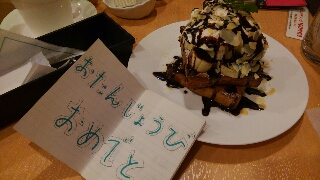 おたんじょうび
おめでと